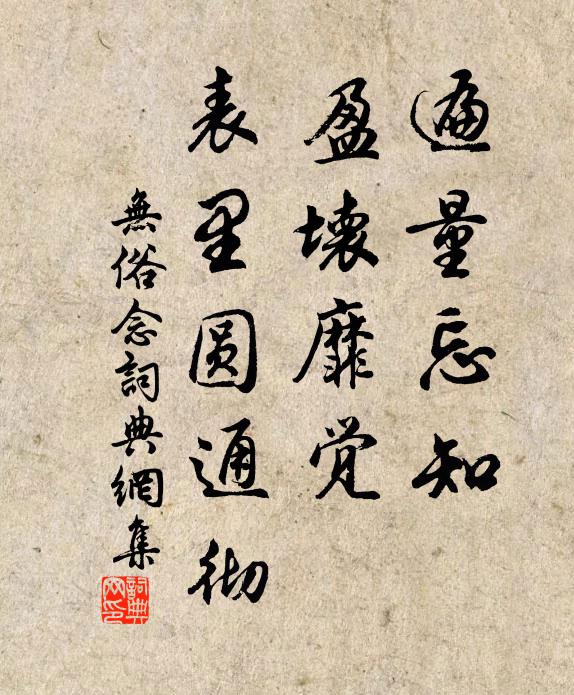 遍量忘知
盈壞靡覺
表里圆通彻
無俗念詞典網集
詞典